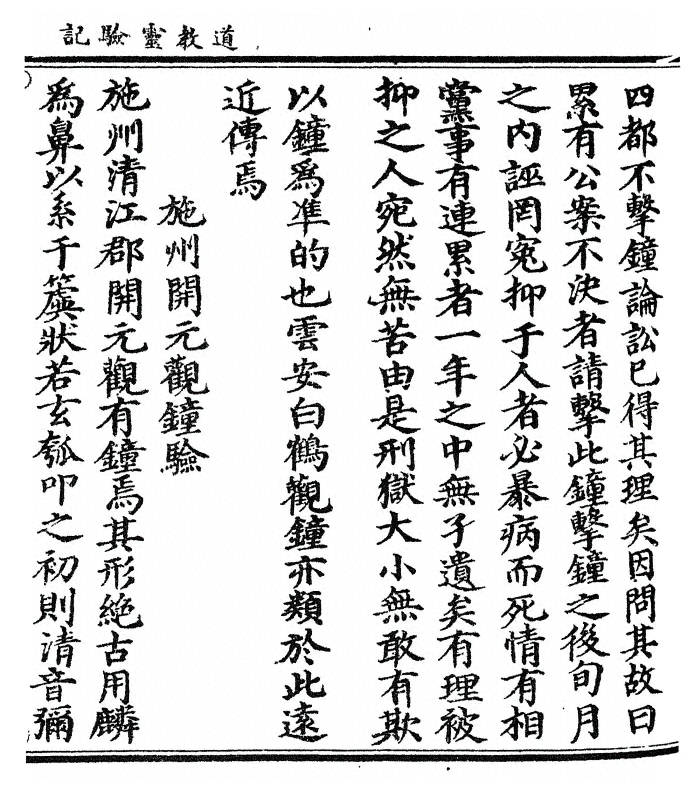 道教靈驗記
四都不擊鐘論訟已得其理矣因問其故曰
累有公案不決者請擊此鐘擊鐘之後旬月
之内誣罔冤抑于人者必暴病而死情有相
黨事有連累者一年之中無孑遺矣有理被
抑之人宛然無苦由是刑獄大小無敢有欺
以鐘爲准的也雲安白鶴觀鐘亦類於此遠
近傳焉
施州開元觀鐘驗
施州清江郡開元觀有鐘焉其形絶古用麟
爲鼻以系于簴狀若玄瓠叩之初則清音彌